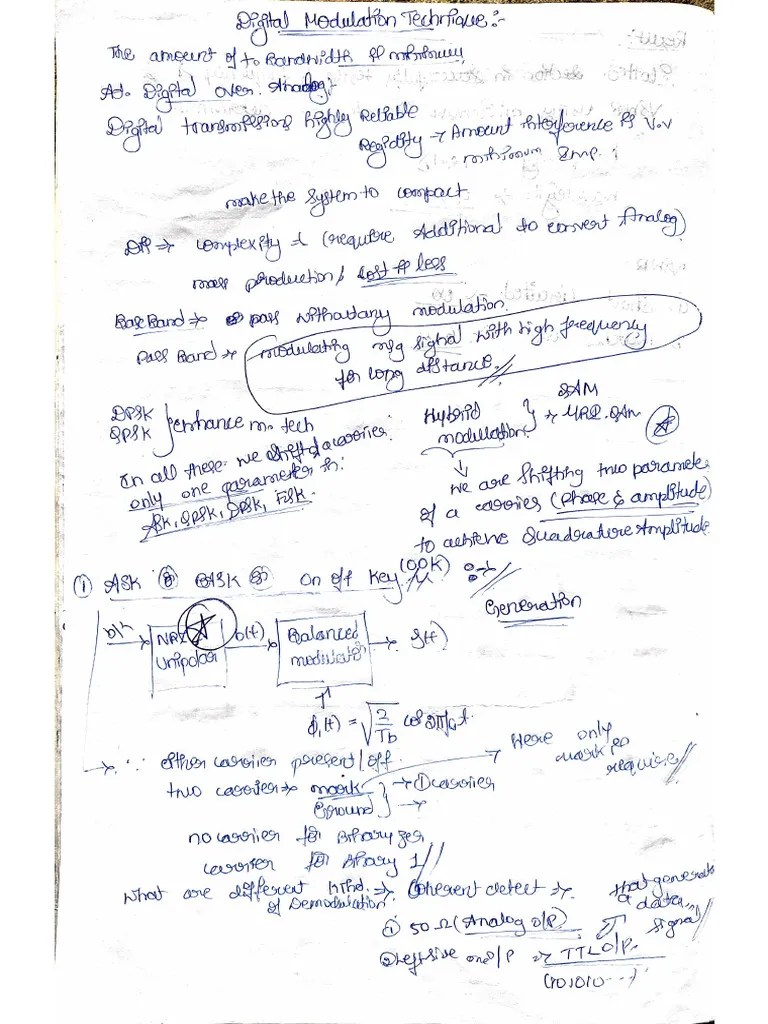 Digital Modulation Technique:-
The amount of to Bandwidth of minimum
Ad. Digital over Analog:-
Digital transmission highly Reliable
Regidity → Amount interference is V.V
minimum Imp.
make the system to compact
Dis → complexity (require Additional to convert Analog)
mass production / cost # less
Base Band → pass without any modulation
Pass Band → modulating msg signal with high frequency
for long distance.
DPSK
QPSK } enhance m. tech
Hybrid modulation } → QAM
QAM
In all these we shifted a carrier
only one parameter in:
ASK, QPSK, DPSK, FSK.
we are shifting two parameter
of a carrier (phase & amplitude)
to achieve Quadrature Amplitude
① ASK BASK On off Key (OOK) :-
Generation
NRZ
Unipolar
b(t)
Balanced
modulator
→ S(t)
ϕ₁(t) = √2/Tb cos 2πfct
→ ∵ either carrier present/off.
two carrier → mark
Ground } → ① carrier
→ Here only
mark is
require
no carrier for Binary zero
carrier for Binary 1
What are different kind → Coherent detect →
of Demodulation
that generate
a data
signal
① 50 Ω (Analog O/P)
② O/P → TTL O/P.
(101010...)